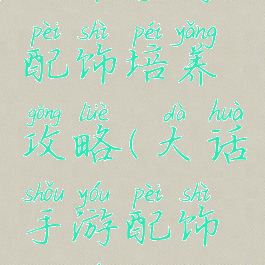 pèi shì péi yǎng
配饰培养
gōng lüè dà huà
攻略(大话
shǒu yóu pèi shì
手游配饰